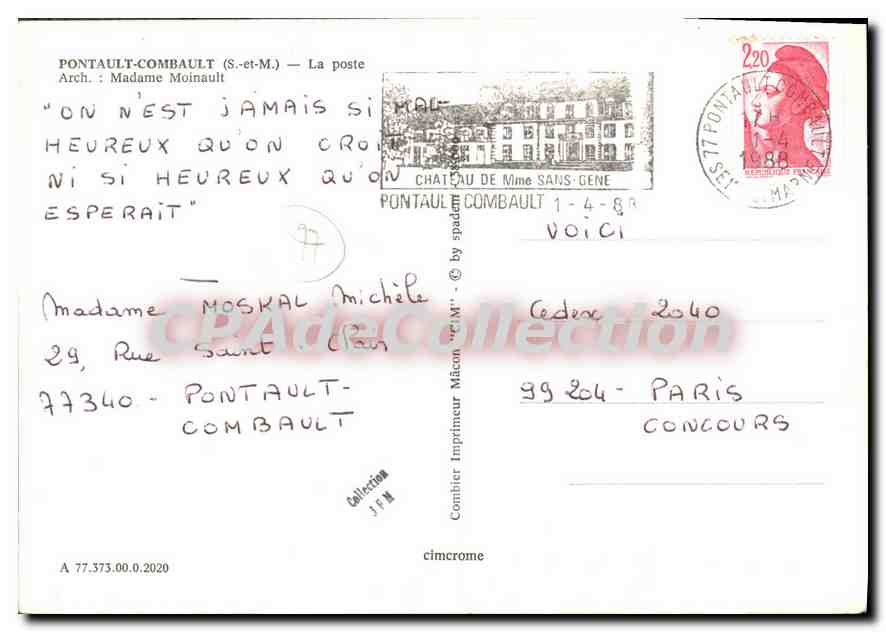 PONTAULT-COMBAULT (S.-et-M.) — La poste
Arch. : Madame Moinault
"ON N'EST JAMAIS SI MAL-
HEUREUX QU'ON CROIT
NI SI HEUREUX QU'ON
ESPERAIT"
97
Madame MOSKAL Michèle
29, Rue Saint Clair
77340 - PONTAULT-
COMBAULT
Collection
J F M
A 77.373.00.0.2020
cimcrome
Combier Imprimeur Mâcon "CIM" - © by spadem
CHATEAU DE Mme SANS-GENE
PONTAULT COMBAULT 1-4-88
77 PONTAULT COMBAULT
17H
1-4
1988
SEINE-ET-MARNE
2,20
REPUBLIQUE FRANÇAISE
VOICI
Cedex 2040
99204 - PARIS
CONCOURS
CPAdeCollection